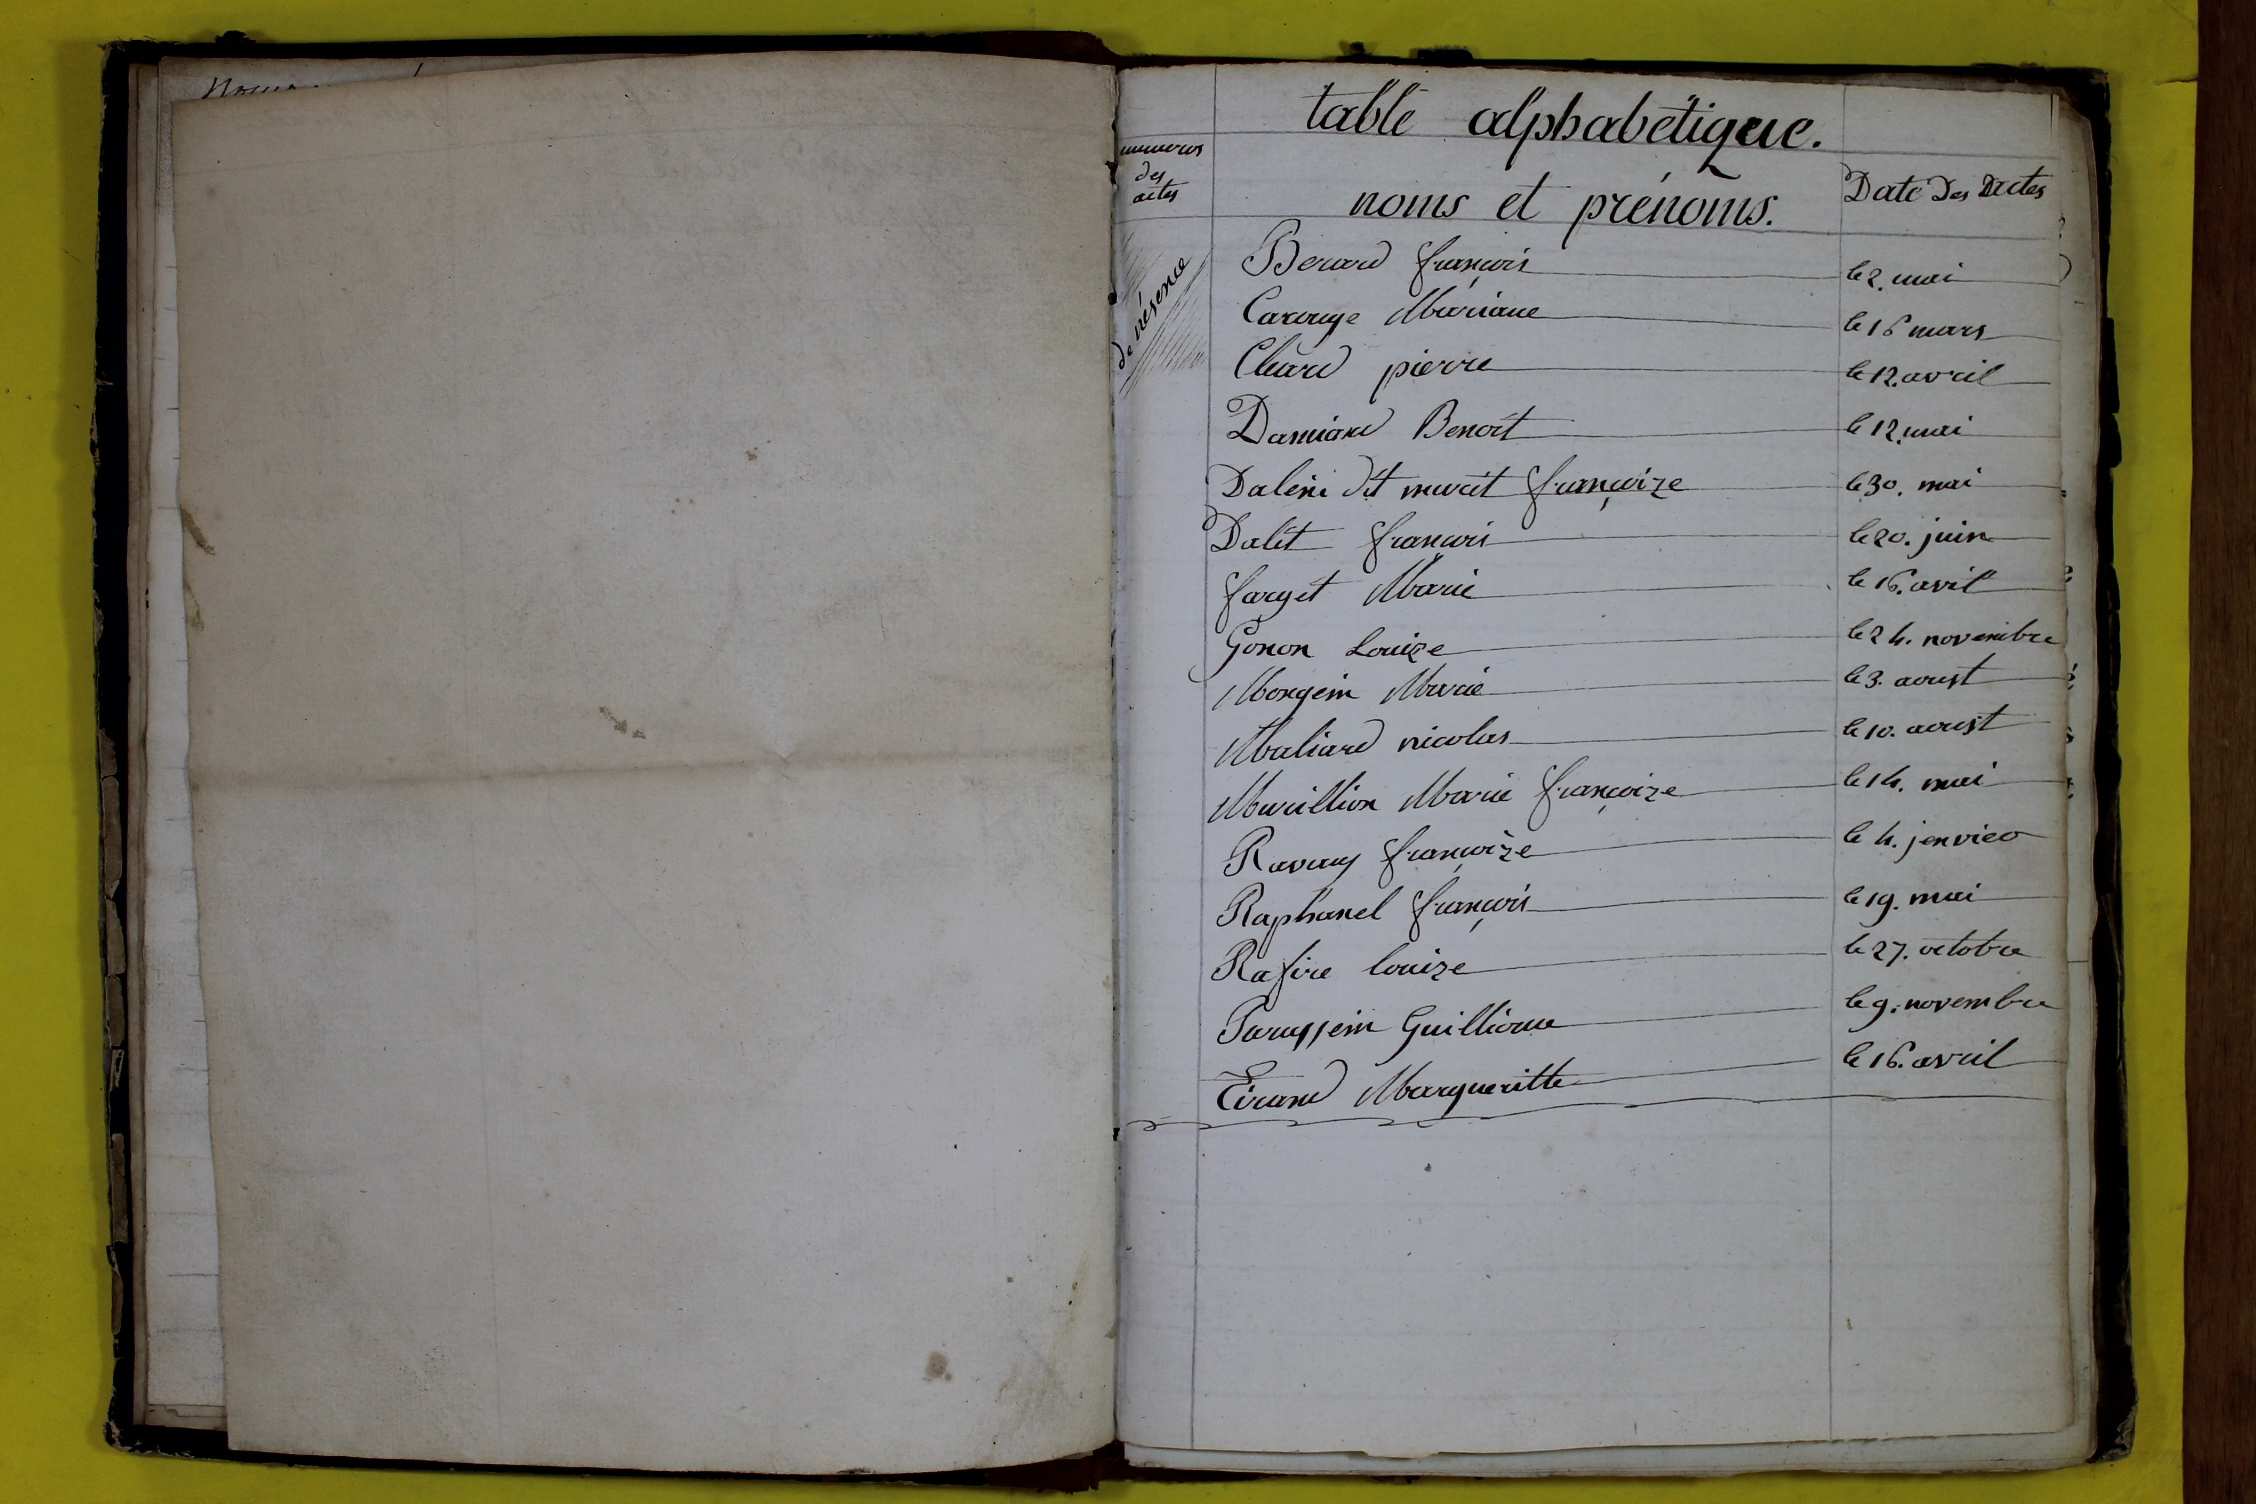 table alphabétique.
numeros
des
actes
noms et prénoms.
Date Des Actes
Berard françois le 2. mai
Carouge Mariane le 16 mars
Cluard pierre le 12. avril
Damiard Benoit le 12. mai
Daléri dit murat françoize le 30. mai
Dalet françois le 20. juin
farget Marie le 16. avril
Gonon Louize le 24. novembre
Mongein Marie le 3. aoust
Maliard nicolas le 10. aoust
Murillion Marie françoize le 14. mai
Ravary françoize le 4. jenvier
Raphanel françois le 19. mai
Rafire louize le 27. octobre
Guilliome le 9. novembre
Tirand Margueritte le 16. avril